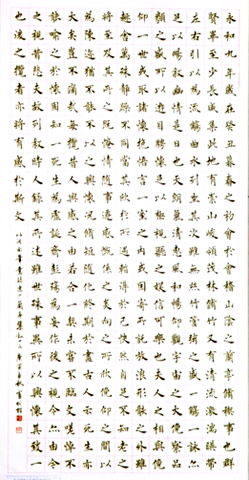 永和九年歲在癸丑暮春之初會于會稽山陰之蘭亭脩禊事也群
賢畢至少長咸集此地有崇山峻領茂林脩竹又有清流激湍映帶
左右引以為流觴曲水列坐其次雖無絲竹管弦之盛一觴一詠亦
足以暢敘幽情是日也天朗氣清惠風和暢仰觀宇宙之大俯察品
類之盛所以遊目騁懷足以極視聽之娛信可樂也夫人之相與俯
仰一世或取諸懷抱悟言一室之內或因寄所託放浪形骸之外雖
趣舍萬殊靜躁不同當其欣於所遇暫得於己快然自足不知老之
將至及其所之既惓情隨事遷感慨係之矣向之所欣俛仰之間以
為陳迹猶不能不以之興懷況脩短隨化終期於盡古人云死生亦
大矣豈不痛哉每攬昔人興感之由若合一契未嘗不臨文嗟悼不
能喻之於懷固知一死生為虛誕齊彭殤為妄作後之視今亦由今
之視昔悲夫故列敘時人錄其所述雖世殊事異所以興懷其致一
也後之攬者亦將有感於斯文